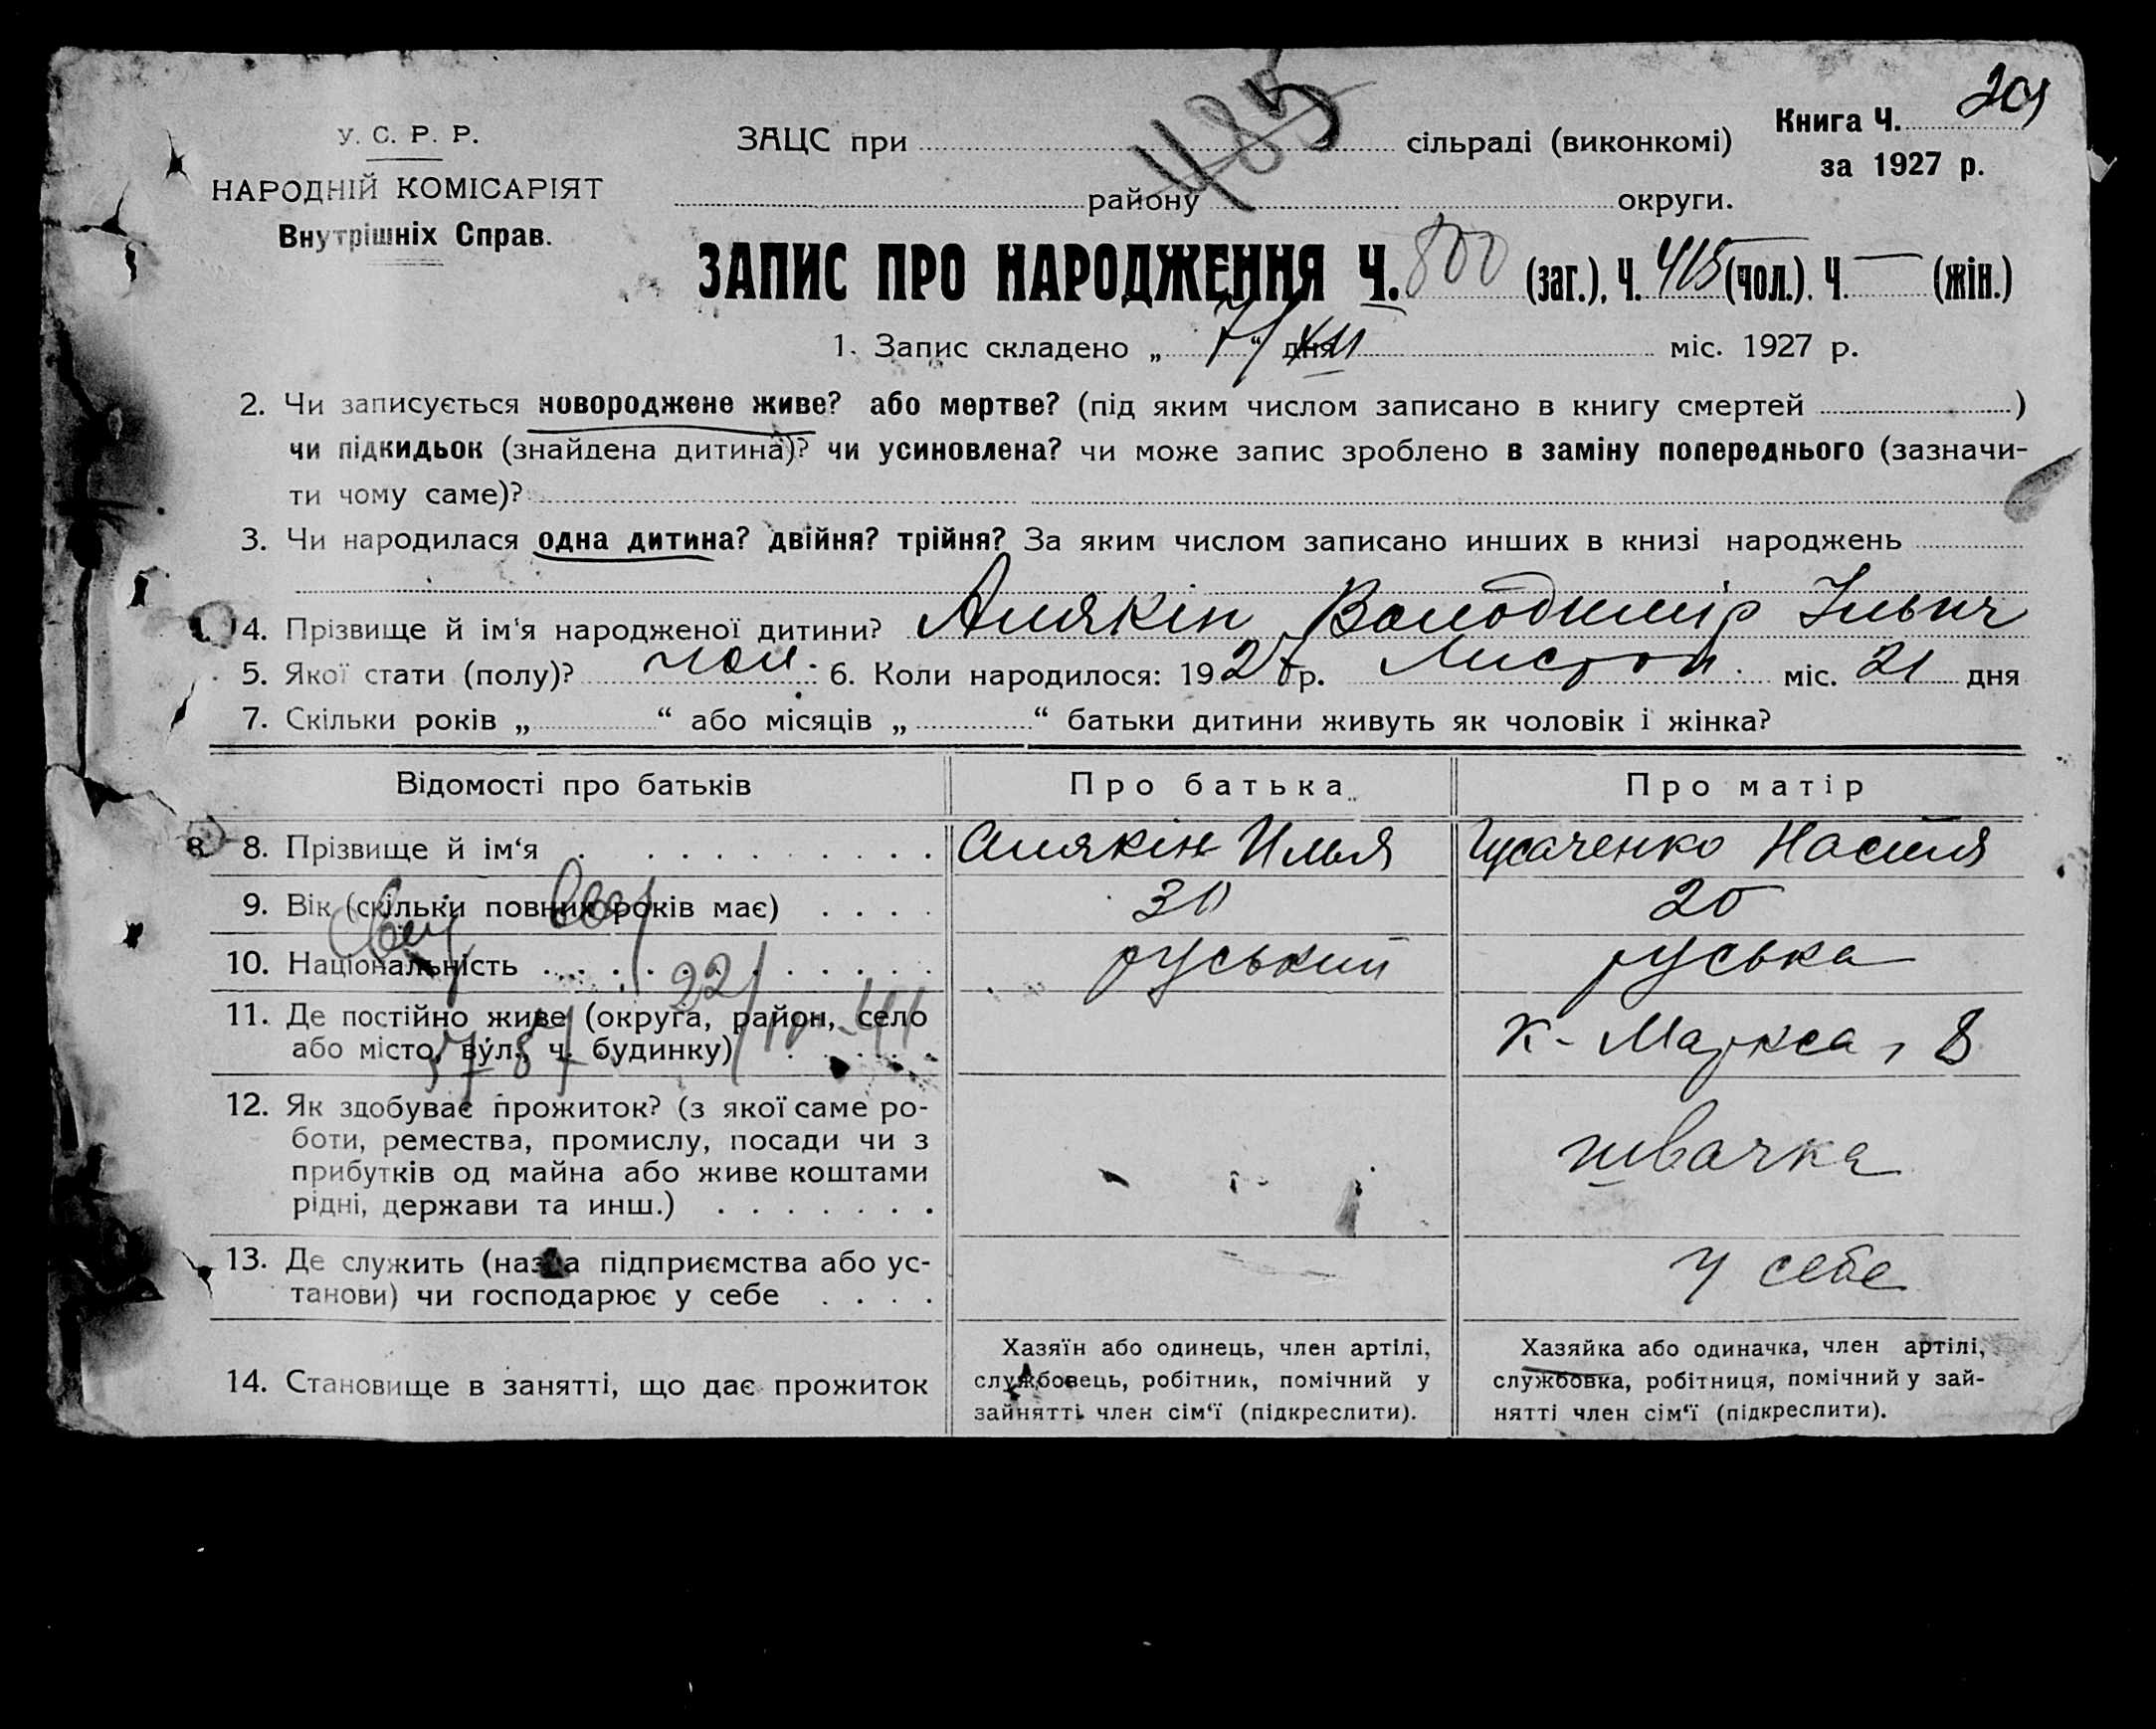 485
У. С. Р. Р.
НАРОДНІЙ КОМІСАРІЯТ
Внутрішніх Справ.
ЗАЦС при сільраді (виконкомі)
району округи.
Книга Ч.
за 1927 р.
ЗАПИС ПРО НАРОДЖЕННЯ Ч. 800 (заг.), Ч. 415 (чол.). Ч — (жін.)
1. Запис складено „ 7/XII “ дня міс. 1927 р.
2. Чи записується новороджене живе? або мертве? (під яким числом записано в книгу смертей )
чи підкидьок (знайдена дитина)? чи усиновлена? чи може запис зроблено в заміну попереднього (зазначи-
ти чому саме)?
3. Чи народилася одна дитина? двійня? трійня? За яким числом записано инших в книзі народжень
4. Прізвище й ім‘я народженої дитини? Алякін Володимір Ільич
5. Якої стати (полу)? чол. 6. Коли народилося: 1927 р. Листоп. міс. 21 дня
7. Скільки років „ “ або місяців „ “ батьки дитини живуть як чоловік і жінка?
Відомості про батьків Про батька Про матір
8. Прізвище й ім‘я Алякін Илья Гусаченко Настя
9. Вік (скільки повних років має) 30 20
10. Національність руський руська
11. Де постійно живе (округа, район, село
або місто, вул., ч. будинку) К-Маркса, 8
12. Як здобуває прожиток? (з якої саме ро-
боти, ремества, промислу, посади чи з
прибутків од майна або живе коштами
рідні, держави та инш.) швачка
13. Де служить (назва підприємства або ус-
танови) чи господарює у себе у себе
14. Становище в занятті, що дає прожиток
Хазяїн або одинець, член артілі,
службовець, робітник, помічний у
зайнятті член сім‘ї (підкреслити).
Хазяйка або одиначка, член артілі,
службовка, робітниця, помічний у зай-
нятті член сім‘ї (підкреслити).